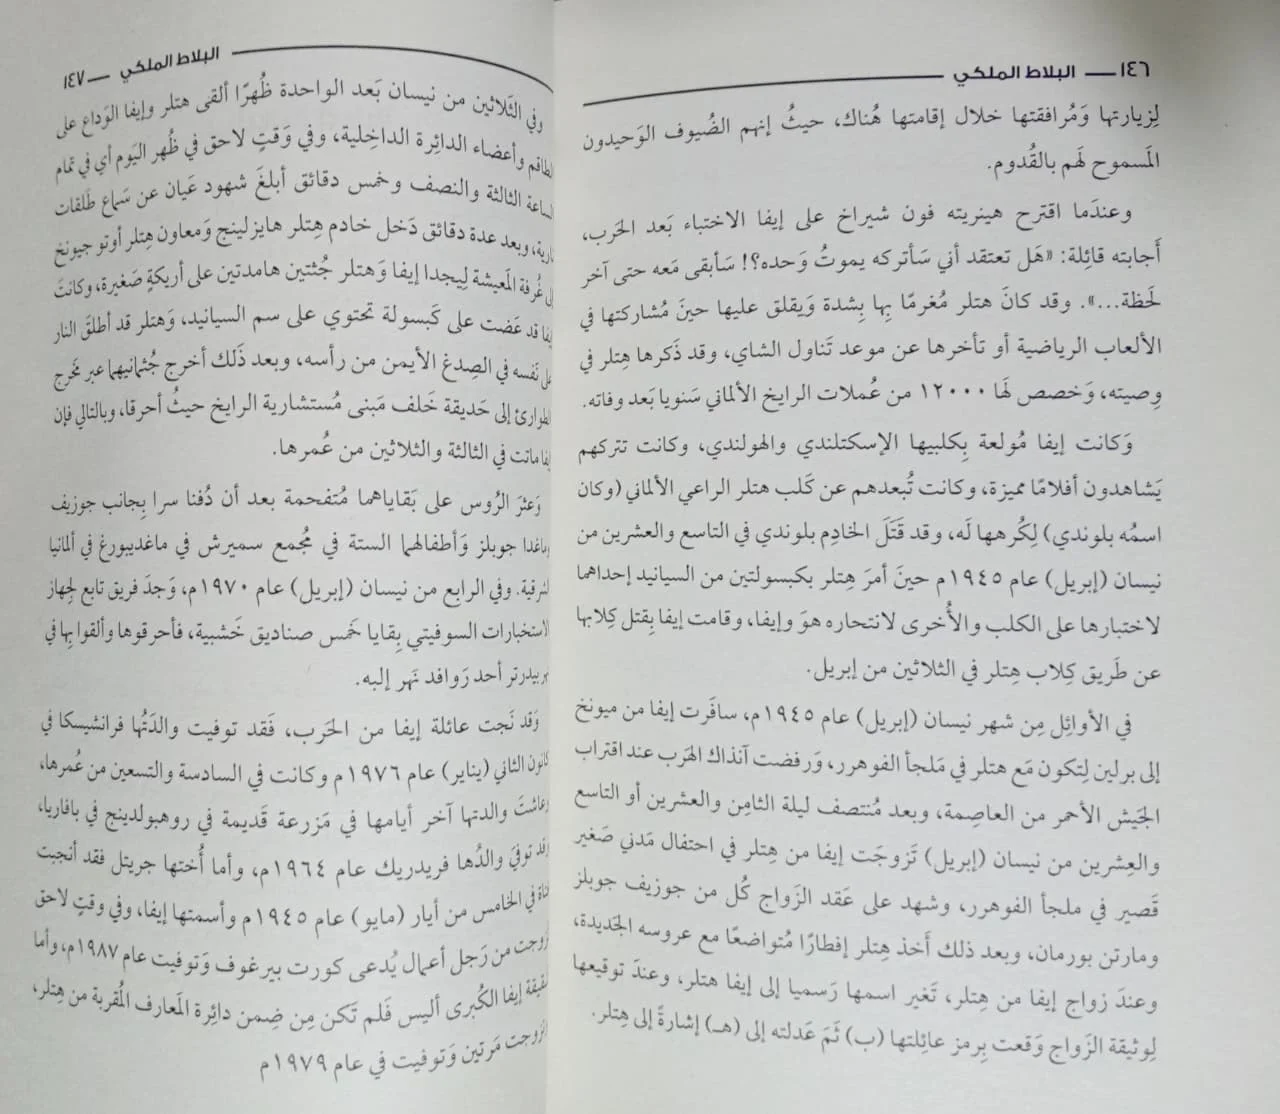 ١٤٦ — البلاط الملكي
لِزيارتها وَمُرافقتها خلال إقامتها هُناك، حيثُ إنهم الضُيوف الوَحيدون
المَسموح لهَم بالقُدوم.
وعندَما اقترح هينريته فون شيراخ على إيفا الاختباء بَعد الحَرب،
أَجابته قائِلة: «هَل تعتقد أني سَأتركه يموتُ وَحده؟! سَأبقى مَعه حتى آخر
لَحظة...». وقد كانَ هتلر مُغرمًا بِها بِشدة وَيقلق عليها حينَ مُشاركتها في
الألعاب الرياضية أو تأخرها عن موعد تَناول الشاي، وقد ذَكرها هِتلر في
وِصيته، وَخصص لهَا ١٢٠٠٠ من عُملات الرايخ الألماني سَنويا بَعد وفاته.
وَكانت إيفا مُولعة بِكلبيها الإسكتلندي والهولندي، وكانت تتركهم
يَشاهدون أفلامًا مميزة، وكانت تُبعدهم عن كَلب هتلر الراعي الألماني (وكان
اسمُه بلوندي) لِكُرهها لَه، وقد قَتَلَ الخادِم بلوندي في التاسع والعشرين من
نيسان (إبريل) عام ١٩٤٥م حينَ أمرَ هِتلر بكبسولتين من السيانيد إحداهما
لاختبارها على الكلب والأُخرى لانتحاره هوَ وإيفا، وقامت إيفا بِقتل كِلابها
عن طَريق كِلاب هِتلر في الثلاثين من إبريل.
في الأوائِل مِن شهر نيسان (إبريل) عام ١٩٤٥م، سافَرت إيفا من ميونخ
إلى برلين لِتكون مَع هتلر في مَلجأ الفوهرر، وَرفضت آنذاك الهَرب عند اقتراب
الجَيش الأحمر من العاصِمة، وبعد مُنتصف ليلة الثامِن والعشرين أو التاسع
والعِشرين من نيسان (إبريل) تَزوجَت إيفا من هِتلر في احتفال مَدني صَغير
قَصير في ملجأ الفوهرر، وشهد على عَقد الزَواج كُل من جوزيف جوبلز
ومارتن بورمان، وبعد ذلك أَخذ هِتلر إفطارًا مُتواضعًا مع عروسه الجَديدة،
وعندَ زواج إيفا من هِتلر، تَغير اسمها رَسميا إلى إيفا هتلر، وعندَ توقيعها
لِوثيقة الزَواج وَقعت بِرمز عائِلتها (ب) ثمَ عَدلته إلى (هـ) إشارةً إلى هِتلر.
البلاط الملكي — ١٤٧
وفي الثَلاثين من نيسان بَعد الواحدة ظُهرًا ألقى هتلر وإيفا الوَداع على
الطاقم وأعضاء الدائِرة الداخِلية، وفي وَقتٍ لاحق في ظُهر اليَوم أي في تمَام
الساعة الثالثة والنصف وخمَس دقائق أبلغَ شهود عَيان عن سَماع طَلقات
نارية، وبعد عدة دقائق دَخل خادم هِتلر هايزلينج وَمعاون هِتلر أوتو جيونخ
إلى غُرفة المَعيشة لِيجدا إيفا وَهتلر جُثتين هامدتين على أريكةٍ صَغيرة، وكانتَ
إيفا قد عَضت على كَبسولة تحتوي على سم السيانيد، وَهتلر قد أطلقَ النار
على نَفسه في الصِدغ الأيمن من رأسه، وبعد ذَلك أخرج جُثمانيهما عبر مخَرج
الطوارئ إلى حَديقة خَلف مَبنى مُستشارية الرايخ حيثُ أحرقا، وبالتالي فإن
إيفا ماتت في الثالثة والثلاثين من عُمرها.
وَعثرَ الرُوس على بَقاياهما مُتفحمة بعد أن دُفنا سرا بِجانب جوزيف
وماغدا جوبلز وَأطفالهما الستة في مُجمع سميرش في ماغديبورغ في ألمانيا
الشرقية. وفي الرابع من نيسان (إبريل) عام ١٩٧٠م، وَجدَ فريق تابع لجِهاز
الاستخبارات السوفيتي بِقايا خمَس صناديق خَشبية، فأحرقوها وألقوا بِها في
نهر بيدرتر أحد رَوافد نَهر إلبه.
وَقد نَجت عائلة إيفا من الحَرب، فَقد توفيت والدَتُها فرانشيسكا في
كانون الثاني (يناير) عام ١٩٧٦م وكانت في السادسة والتسعين من عُمرها،
وعاشتَ والدتها آخر أيامها في مَزرعة قَديمة في روهبولدينج في بافاريا،
وقد توفيَ والدُها فريدريك عام ١٩٦٤م، وأما أُختها جريتل فقد أنجبت
فتاة في الخامس من أيار (مايو) عام ١٩٤٥م وأسمتها إيفا، وفي وقتٍ لاحق
تزوجت من رَجل أعمال يُدعى كورت بيرغوف وَتوفيت عام ١٩٨٧م، وأما
شقيقة إيفا الكُبرى أليس فَلم تَكن مِن ضِمن دائِرة المَعارف المُقربة من هِتلر،
تزوجت مَرتين وَتوفيت في عام ١٩٧٩م